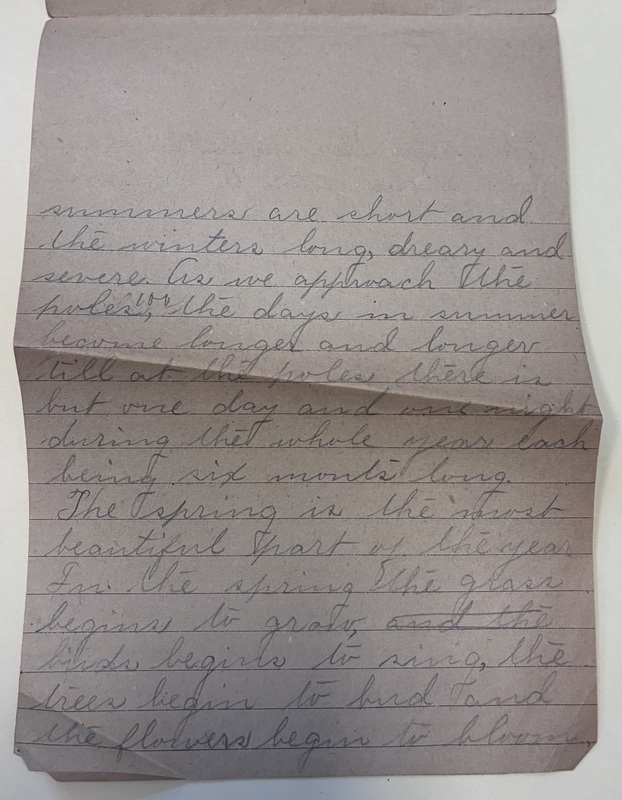 summers are short and
the winters long, dreary and
severe. As we approach the
poles, the days in summer
become longer and longer
till at the poles there is
but one day and one night
during the whole year each
being six monts long.
The spring is the most
beautiful part of the year
In the spring the grass
begins to grow, and the
birds begins to sing, the
trees begin to bud and
the flowers begin to bloom,